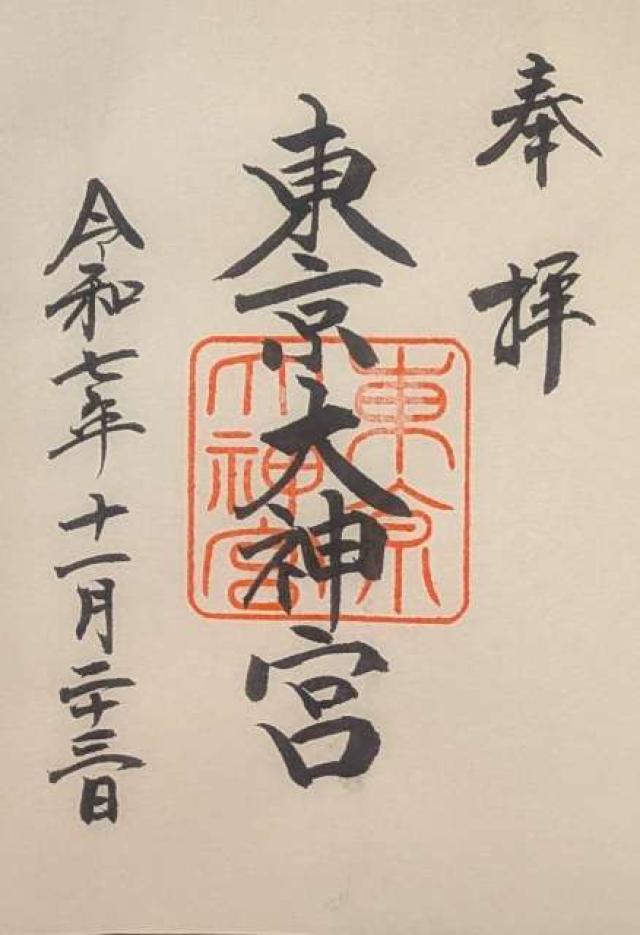 奉拝
東京大神宮
東京
大神宮
令和七年十一月二十三日